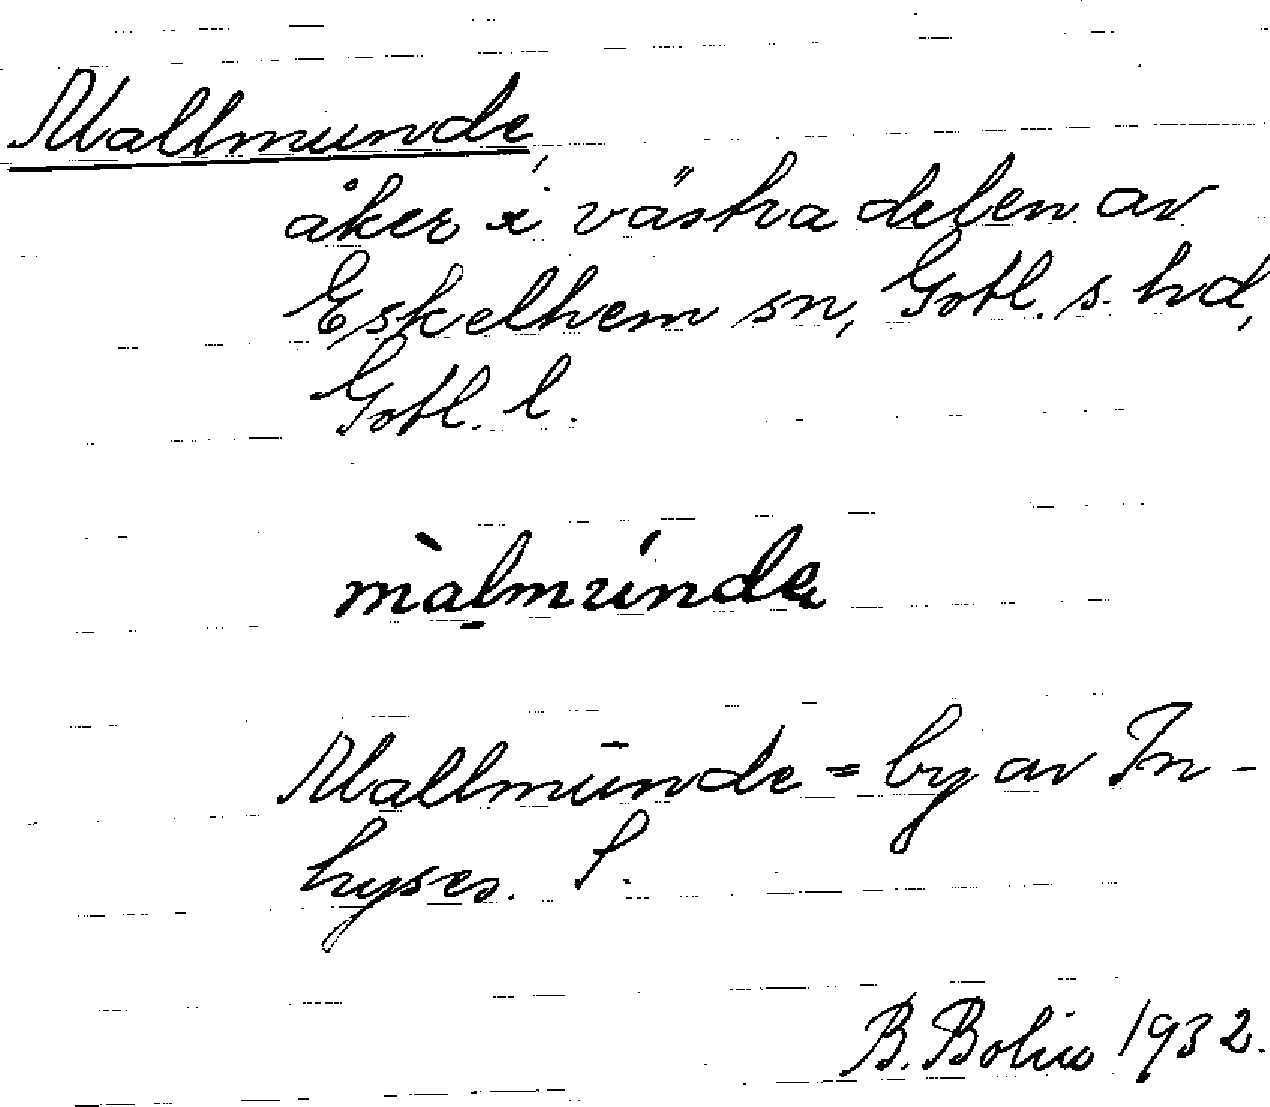 Mallmunde,
åker i västra delen av
Eskelhem sn, Gotl. s. hd,
Gotl. l.
màlmúnde
Mallmunde = by av In-
hyses. S.
B. Bolin 1932.